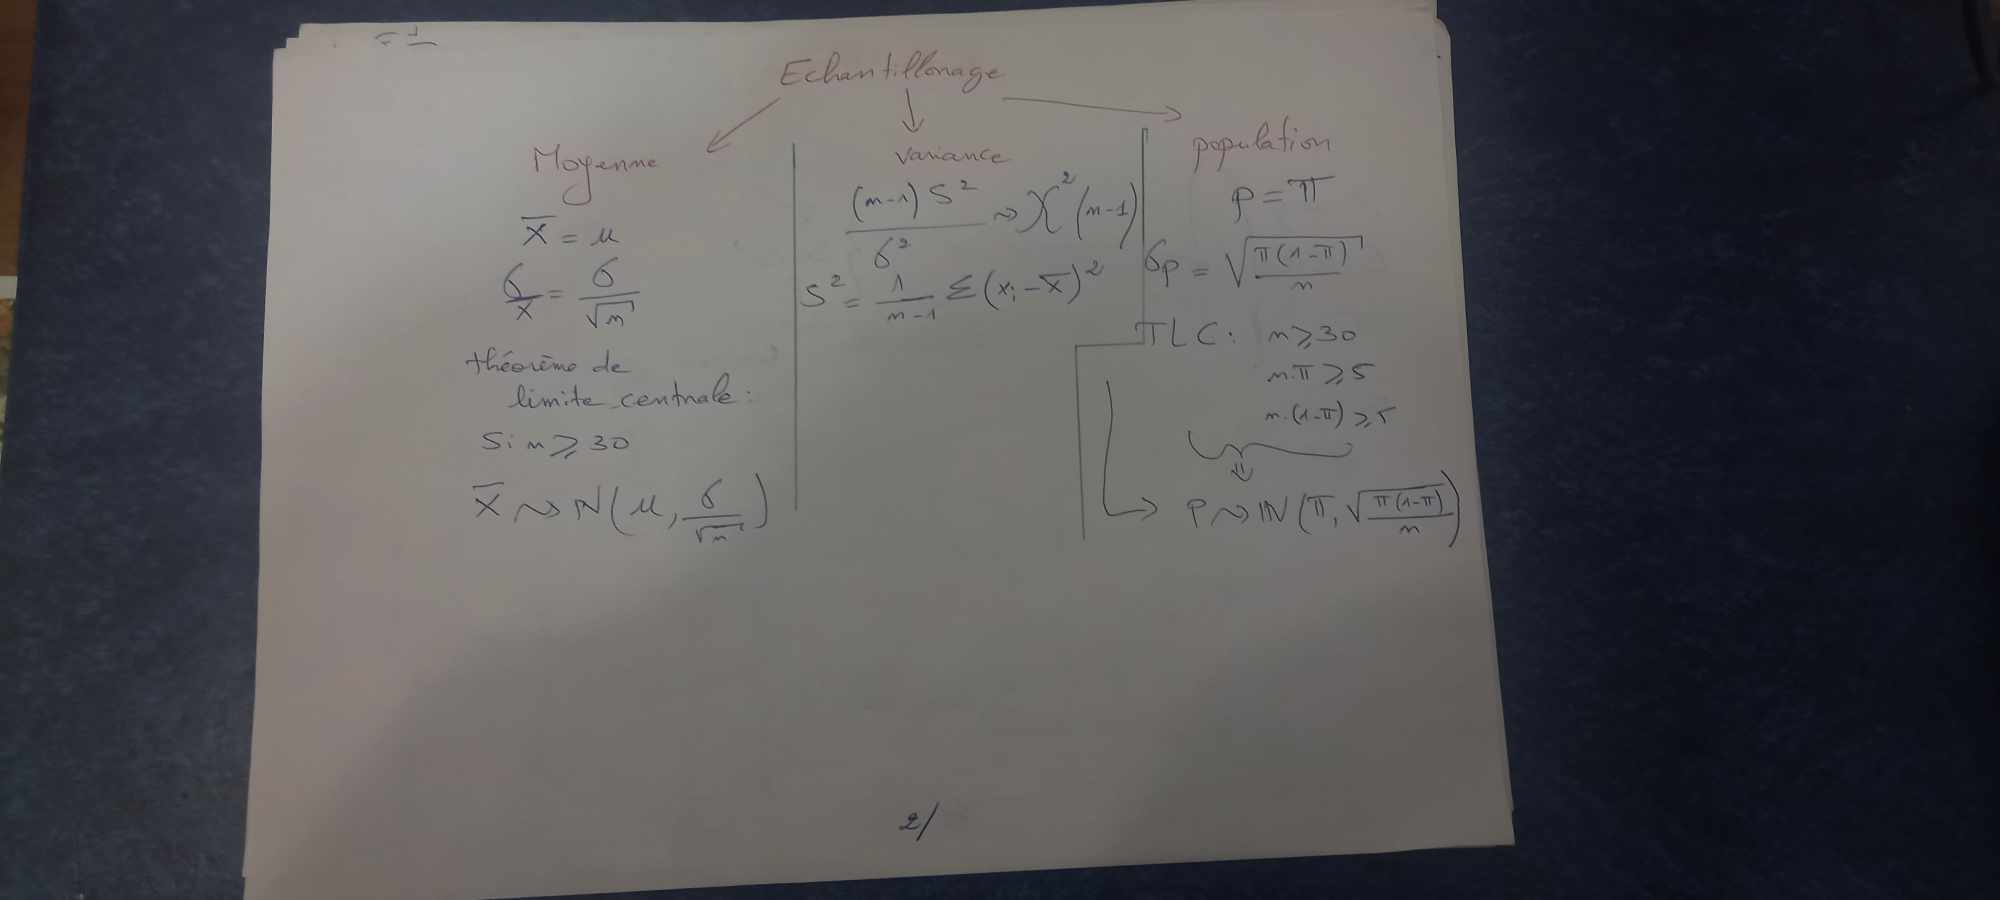 Echantillonage
Moyenne
x̄ = μ
σ_x̄ = σ/√n
théorème de
limite centrale :
Si n ⩾ 30
x̄ ~> N(μ, σ/√n)
variance
(n-1) S²/σ² ~> χ²(n-1)
S² = 1/(n-1) Σ(xᵢ - x̄)²
population
p = π
σp = √(π(1-π)/n)
TLC : n ⩾ 30
n.π ⩾ 5
n.(1-π) ⩾ 5
P ~> N(π, √(π(1-π)/n))
2/